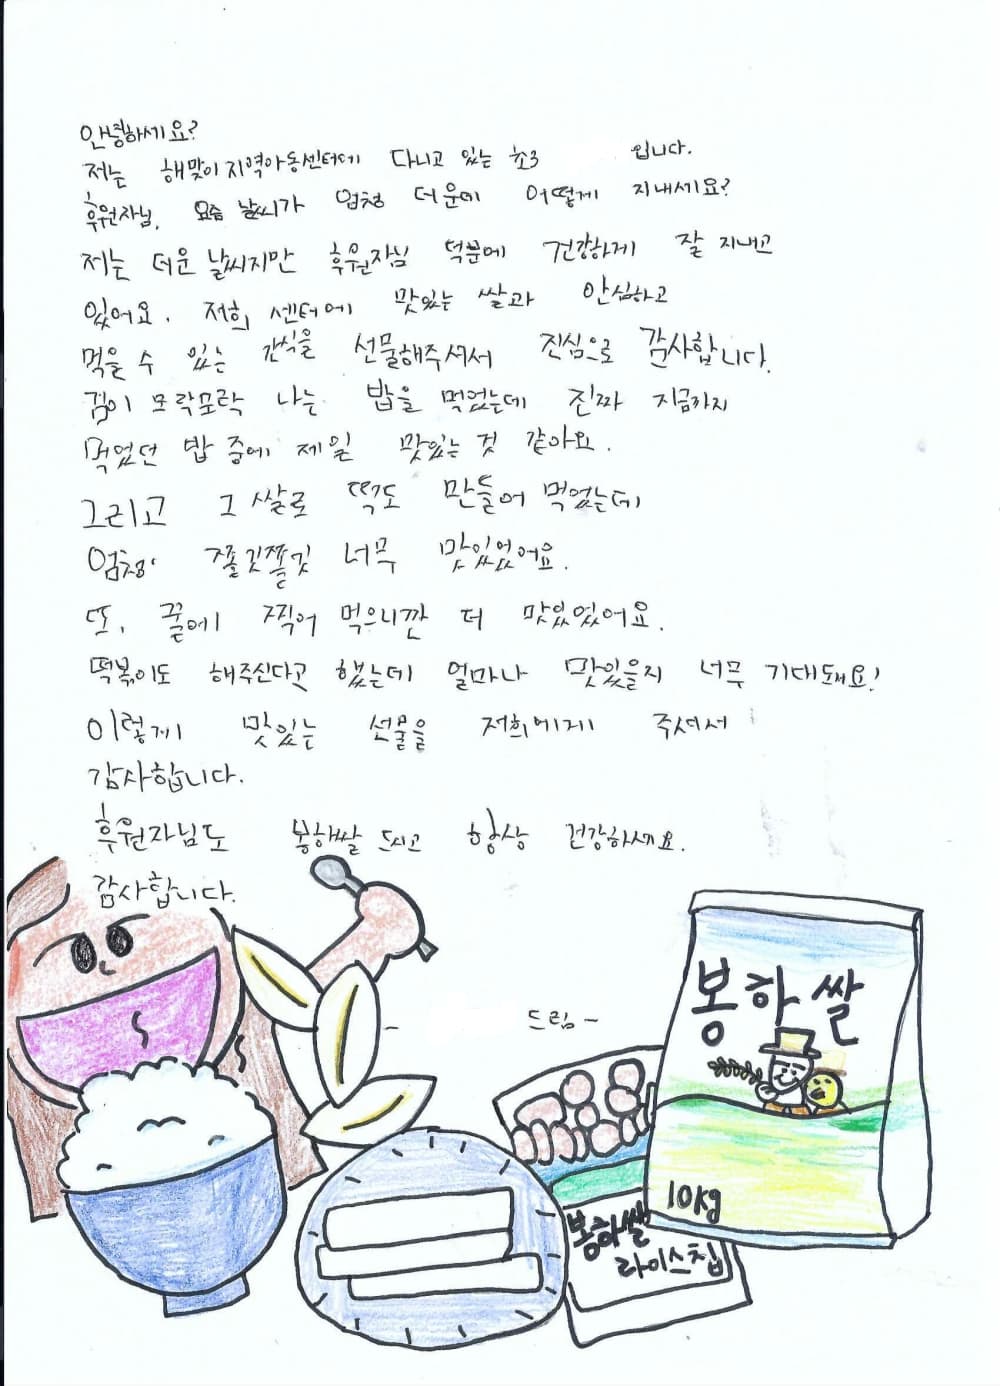 안녕하세요?
저는 해맞이지역아동센터에 다니고 있는 초3 입니다.
후원자님, 요즘 날씨가 엄청 더운데 어떻게 지내세요?
저는 더운 날씨지만 후원자님 덕분에 건강하게 잘 지내고
있어요. 저희 센터에 맛있는 쌀과 안심하고
먹을 수 있는 간식을 선물해주셔서 진심으로 감사합니다.
김이 모락모락 나는 밥을 먹었는데 진짜 지금까지
먹었던 밥 중에 제일 맛있는 것 같아요.
그리고 그 쌀로 떡도 만들어 먹었는데
엄청 쫄깃쫄깃 너무 맛있었어요.
또, 꿀에 찍어 먹으니깐 더 맛있었어요.
떡볶이도 해주신다고 했는데 얼마나 맛있을지 너무 기대돼요!
이렇게 맛있는 선물을 저희에게 주셔서
감사합니다.
후원자님도 봉해쌀 드시고 항상 건강하세요.
감사합니다.
- 드림 -
봉하쌀
10kg
봉하쌀
라이스칩